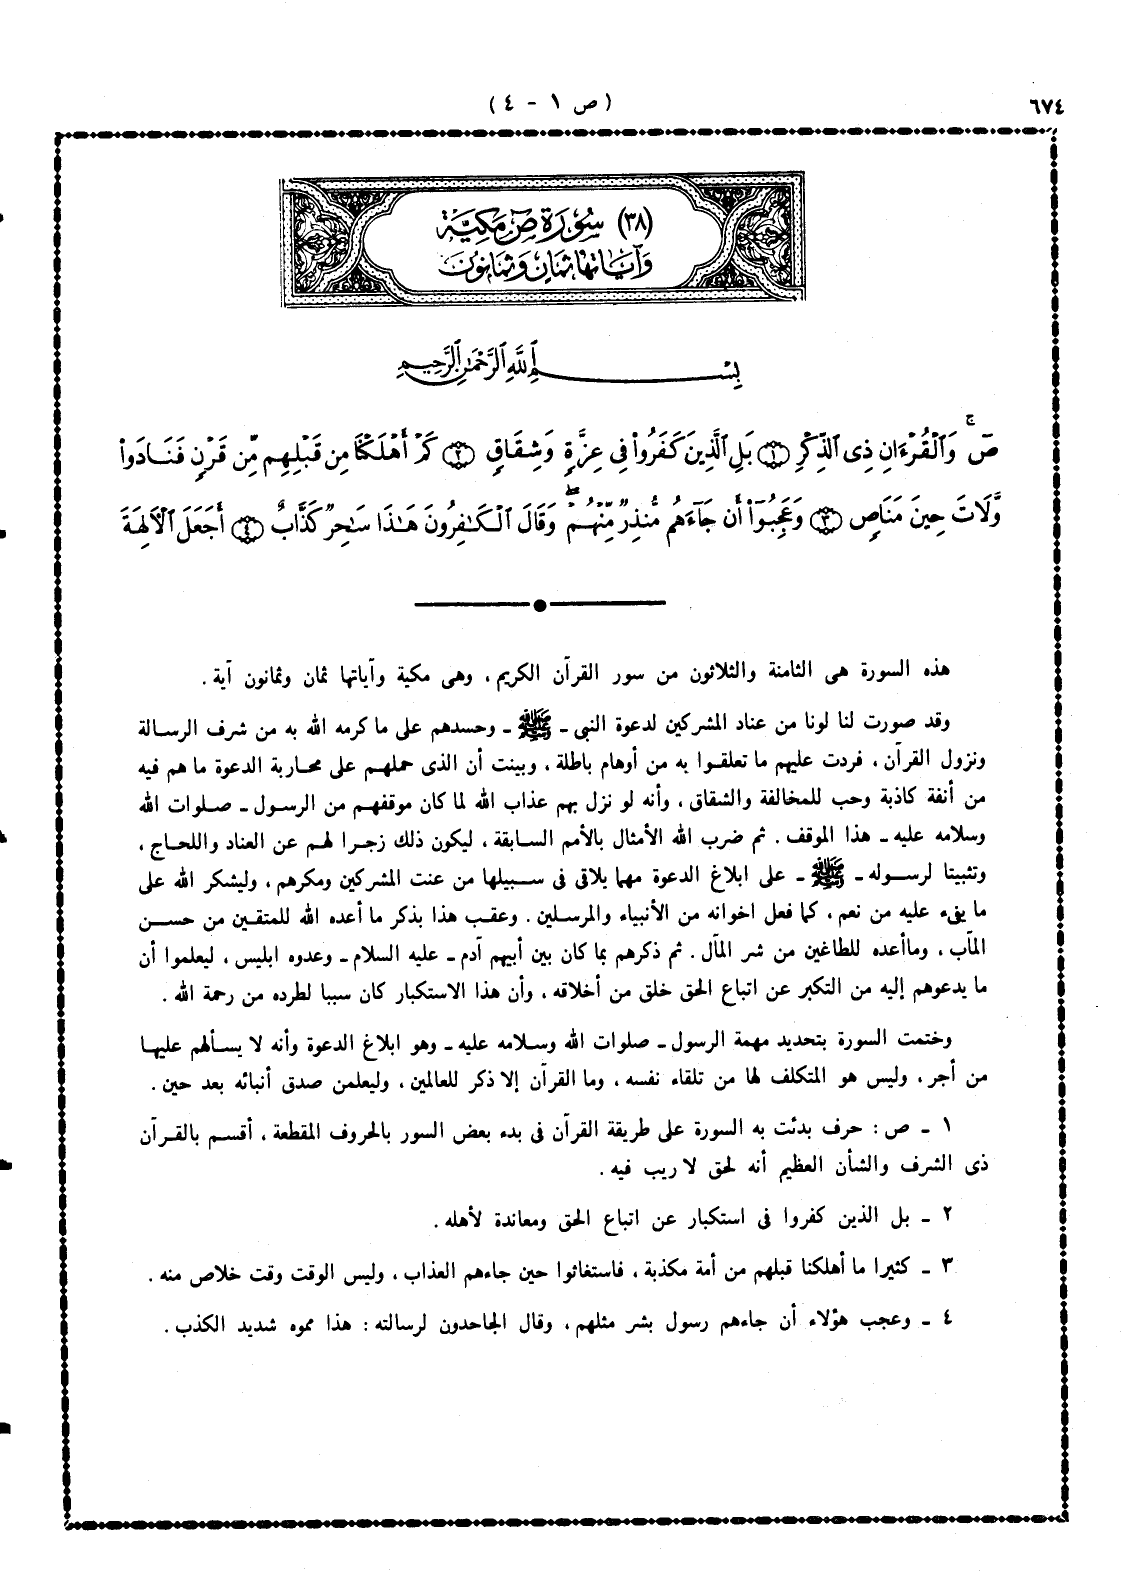 ٦٧٤
( ص ١ - ٤ )
(٣٨) سُورَة صٓ مَكيَّة
وَآيَاتها ثمَان وَثمَانُون
بِسْمِ ٱللَّهِ ٱلرَّحْمَٰنِ ٱلرَّحِيمِ
صٓ ۚ وَٱلْقُرْءَانِ ذِى ٱلذِّكْرِ ﴿١﴾ بَلِ ٱلَّذِينَ كَفَرُوا۟ فِى عِزَّةٍ وَشِقَاقٍ ﴿٢﴾ كَمْ أَهْلَكْنَا مِن قَبْلِهِم مِّن قَرْنٍ فَنَادَوا۟
وَّلَاتَ حِينَ مَنَاصٍ ﴿٣﴾ وَعَجِبُوٓا۟ أَن جَآءَهُم مُّنذِرٌ مِّنْهُمْ ۖ وَقَالَ ٱلْكَٰفِرُونَ هَٰذَا سَٰحِرٌ كَذَّابٌ ﴿٤﴾ أَجَعَلَ ٱلْءَالِهَةَ
هذه السورة هى الثامنة والثلاثون من سور القرآن الكريم ، وهى مكية وآياتها ثمان وثمانون آية .
وقد صورت لنا لونا من عناد المشركين لدعوة النبى ـ ﷺ ـ وحسدهم على ما كرمه الله به من شرف الرسالة
ونزول القرآن ، فردت عليهم ما تعلقوا به من أوهام باطلة ، وبينت أن الذى حملهم على محاربة الدعوة ما هم فيه
من أنفة كاذبة وحب للمخالفة والشقاق ، وأنه لو نزل بهم عذاب الله لما كان موقفهم من الرسول ـ صلوات الله
وسلامه عليه ـ هذا الموقف . ثم ضرب الله الأمثال بالأمم السابقة ، ليكون ذلك زجرا لهم عن العناد واللحاج ،
وتثبيتا لرسوله ـ ﷺ ـ على ابلاغ الدعوة مهما يلاقى فى سبيلها من عنت المشركين ومكرهم ، وليشكر الله على
ما يفىء عليه من نعم ، كما فعل اخوانه من الأنبياء والمرسلين . وعقب هذا بذكر ما أعده الله للمتقين من حسن
المآب ، وماأعده للطاغين من شر المآل . ثم ذكرهم بما كان بين أبيهم آدم ـ عليه السلام ـ وعدوه ابليس ، ليعلموا أن
ما يدعوهم إليه من التكبر عن اتباع الحق خلق من أخلاقه ، وأن هذا الاستكبار كان سببا لطرده من رحمة الله .
وختمت السورة بتحديد مهمة الرسول ـ صلوات الله وسلامه عليه ـ وهو ابلاغ الدعوة وأنه لا يسألهم عليها
من أجر ، وليس هو المتكلف لها من تلقاء نفسه ، وما القرآن إلا ذكر للعالمين ، وليعلمن صدق أنبائه بعد حين .
١ ـ ص : حرف بدئت به السورة على طريقة القرآن فى بدء بعض السور بالحروف المقطعة ، أقسم بالقرآن
ذى الشرف والشأن العظيم أنه لحق لا ريب فيه .
٢ ـ بل الذين كفروا فى استكبار عن اتباع الحق ومعاندة لأهله .
٣ ـ كثيرا ما أهلكنا قبلهم من أمة مكذبة ، فاستغاثوا حين جاءهم العذاب ، وليس الوقت وقت خلاص منه .
٤ ـ وعجب هؤلاء أن جاءهم رسول بشر مثلهم ، وقال الجاحدون لرسالته : هذا مموه شديد الكذب .